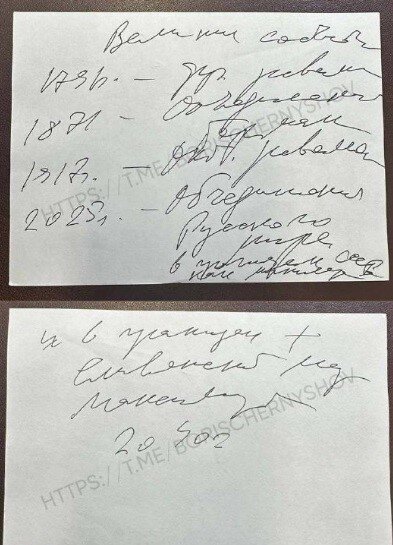 Великие события
179 г. – фр. револ
1871 – объединение
Германии
1917г. – окт. револю
2023г. – объединения
Русского
мира
в границах СССР
как минимум
и в границах +
славянский мир
максимум
HTTPS://T.ME/BORISCHERNYSHOV
HTTPS://T.ME/BORISCHERNYSHOV